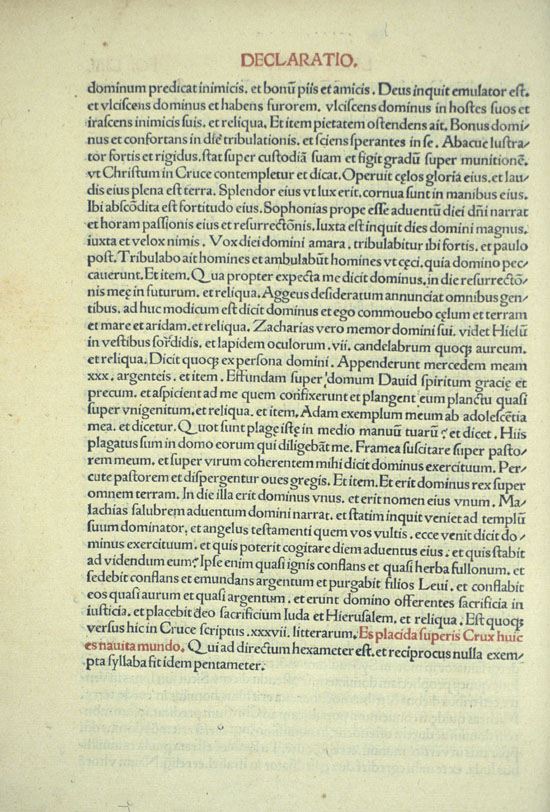 DECLARATIO.
dominum predicat inimicis. et bonū piis et amicis. Deus inquit emulator est.
et vlciscens dominus et habens furorem. vlciscens dominus in hostes suos et
irascens inimicis suis. et reliqua. Et item pietatem ostendens ait. Bonus domi/
nus et confortans in die tribulationis. et sciens sperantes in se. Abacuc lustra/
tor fortis et rigidus. stat super custodiā suam et figit gradū super munitionē.
vt Christum in Cruce contempletur et dicat. Operuit cęlos gloria eius. et lau/
dis eius plena est terra. Splendor eius vt lux erit. cornua sunt in manibus eius.
Ibi abscōdita est fortitudo eius. Sophonias prope esse aduentū diei dñi narrat
et horam passionis eius et resurrectōnis. Iuxta est inquit dies domini magnus.
iuxta et velox nimis. Vox diei domini amara. tribulabitur ibi fortis. et paulo
post. Tribulabo ait homines et ambulabūt homines vt cęci. quia domino pec/
cauerunt. Et item. Qua propter expecta me dicit dominus. in die resurrectō/
nis meę in futurum. et reliqua. Aggeus desideratum annunciat omnibus gen/
tibus. ad huc modicum est dicit dominus et ego commouebo cęlum et terram
et mare et aridam. et reliqua. Zacharias vero memor domini sui. videt Hiesū
in vestibus sordidis. et lapidem oculorum. vii. candelabrum quoqȝ aureum.
et reliqua. Dicit quoqȝ ex persona domini. Appenderunt mercedem meam
xxx. argenteis. et item. Effundam super domum Dauid spiritum gracię et
precum. et aspicient ad me quem confixerunt et plangent eum planctu quasi
super vnigenitum. et reliqua. et item. Adam exemplum meum ab adolescētia
mea. et dicetur. Quot sunt plagę istę in medio manuū tuarū? et dicet. Hiis
plagatus sum in domo eorum qui diligebāt me. Framea suscitare super pasto/
rem meum. et super virum coherentem mihi dicit dominus exercituum. Per/
cute pastorem et dispergentur oues gregis. Et item. Et erit dominus rex super
omnem terram. In die illa erit dominus vnus. et erit nomen eius vnum. Ma/
lachias salubrem aduentum domini narrat. et statim inquit veniet ad templū
suum dominator, et angelus testamenti quem vos vultis. ecce venit dicit do/
minus exercituum. et quis poterit cogitare diem aduentus eius. et quis stabit
ad videndum eum? Ipse enim quasi ignis conflans et quasi herba fullonum. et
sedebit conflans et emundans argentum et purgabit filios Leui. et conflabit
eos quasi aurum et quasi argentum. et erunt domino offerentes sacrificia in
iusticia. et placebit deo sacrificium Iuda et Hierusalem. et reliqua. Est quoqȝ
versus hic in Cruce scriptus. xxxvii. litterarum. Es placida superis Crux huic
es nauita mundo. Qui ad directum hexameter est. et reciprocus nulla exem/
pta syllaba fit idem pentameter.